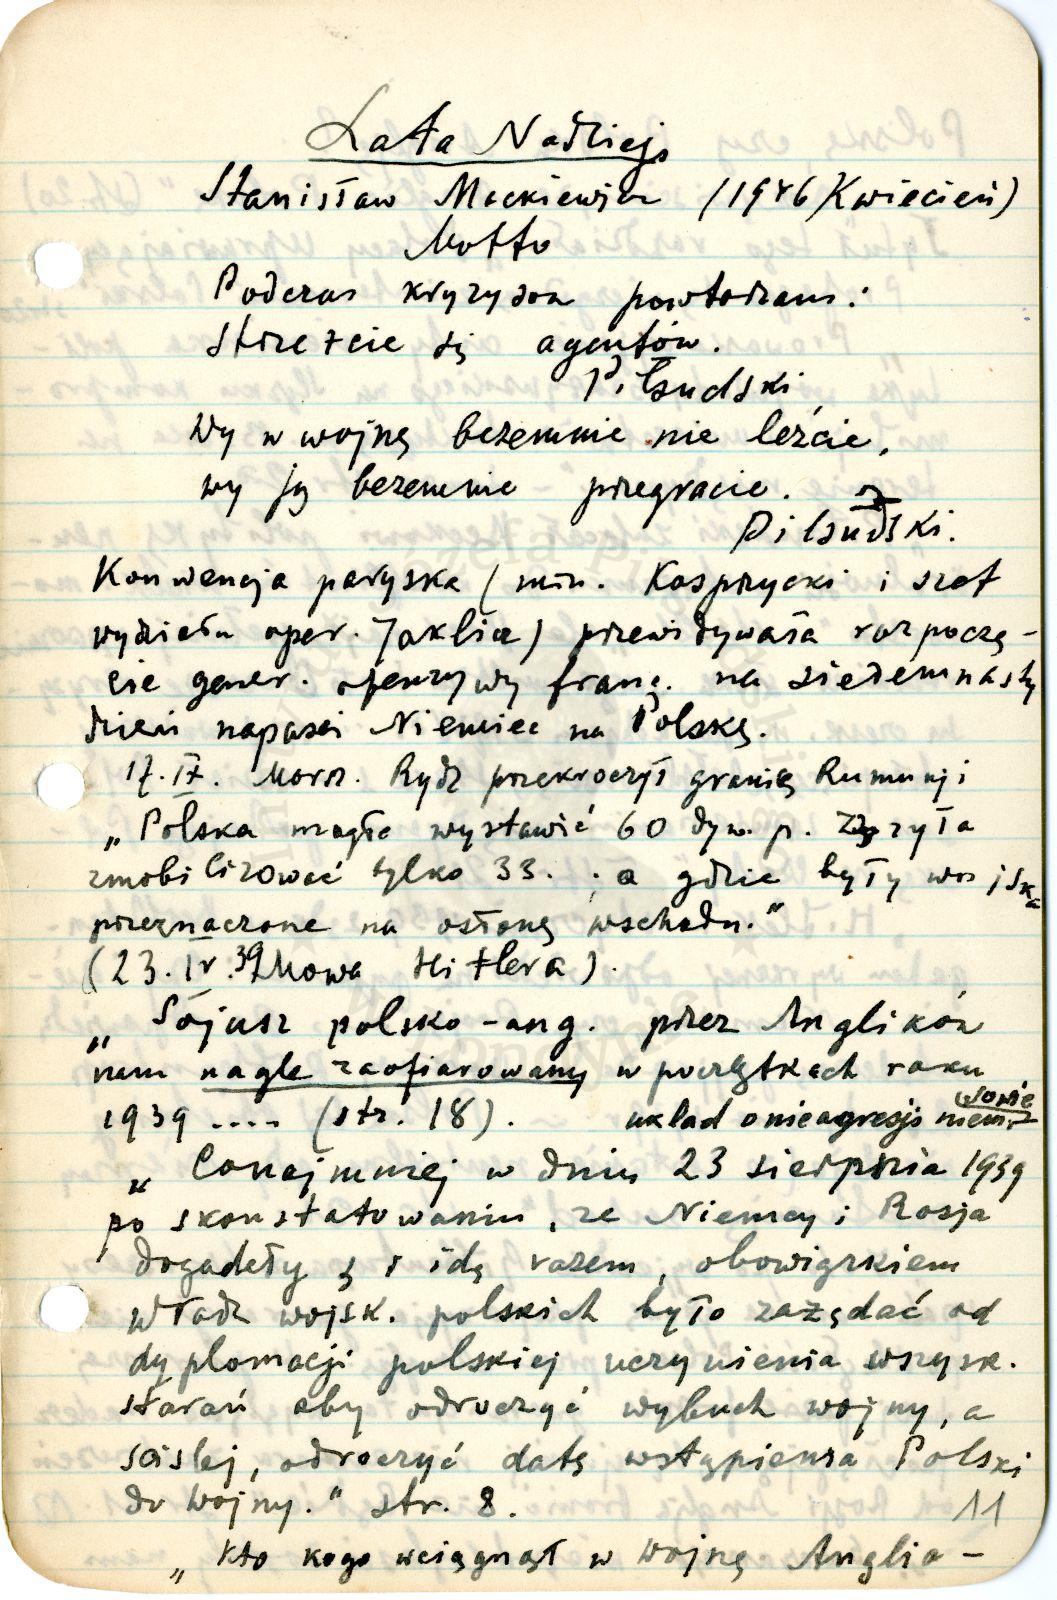 Lata Nadzieji
Stanisław Mackiewicz (1946 Kwiecień)
Motto
Podczas kryzysów powtarzam:
strzeżcie się agentów.
Piłsudski
Wy w wojnę bezemnie nie leźcie,
wy ją bezemnie przegracie.
Piłsudski.
Konwencja paryska (min. Kasprzycki i szef
wydziału oper. Jaklicz) przewidywała rozpoczę-
cie gener. ofenzywy franc. na siedemnasty
dzień napaści Niemiec na Polskę.
17.IX. Marsz. Rydz przekroczył granicę Rumunji
„Polska mogła wystawić 60 dyw. p. zdążyła
zmobilizować tylko 33. . a gdzie były wojska
przeznaczone na osłonę wschodu."
(23.IV.39 Mowa Hitlera).
„Sojusz polsko-ang. przez Anglików
nam nagle zaofiarowany w początkach roku
1939 .... (str. 18). układ o nieagresji niem.
"Conajmniej w dniu 23 sierpnia 1939
po skonstatowaniu, że Niemcy i Rosja
dogadały się i idą razem, obowiązkiem
władz wojsk. polskich było zażądać od
dyplomacji polskiej uczynienia wszysk.
starań aby odroczyć wybuch wojny, a
ściślej, odroczyć datę wstąpienia Polski
do wojny." str. 8.
11
„Kto kogo wciągnął w wojnę Anglia-